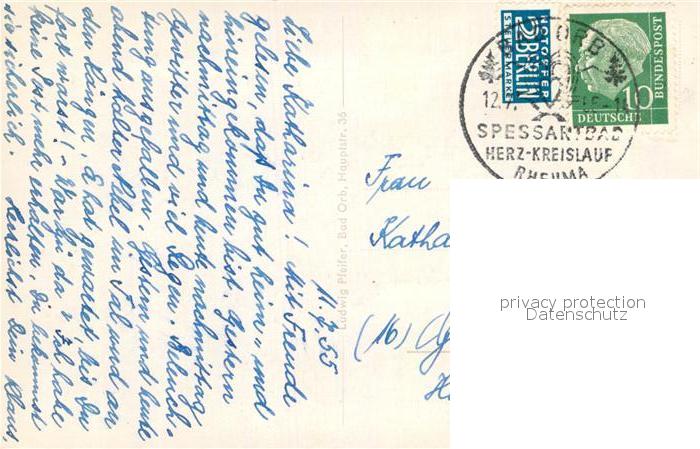 11.7.55
Liebe Katharina! Mit Freude
gelesen, daß Du gut heim- und
hineingekommen bist. Gestern
nachmittag und heute nachmittag
Gewitter und viel Regen. Beleuch-
tung ausgefallen. Gestern und heute
abend Nebel im Tal und an
den Hängen. E. hat gewartet bis Du
fort warst! - Warst Du da? Ich habe
keine Post mehr erhalten. Du bekommst
sie sicherlich. Herzlichst Dein Klaus.
Ludwig Pfeifer, Bad Orb, Hauptstr. 36
NOTOPFER
2 BERLIN
STEUERMARKE
10
DEUTSCHE
BUNDESPOST
BAD ORB
12.7.
SPESSARTBAD
HERZ-KREISLAUF
RHEUMA
Frau
Katha
(16)
privacy protection
Datenschutz